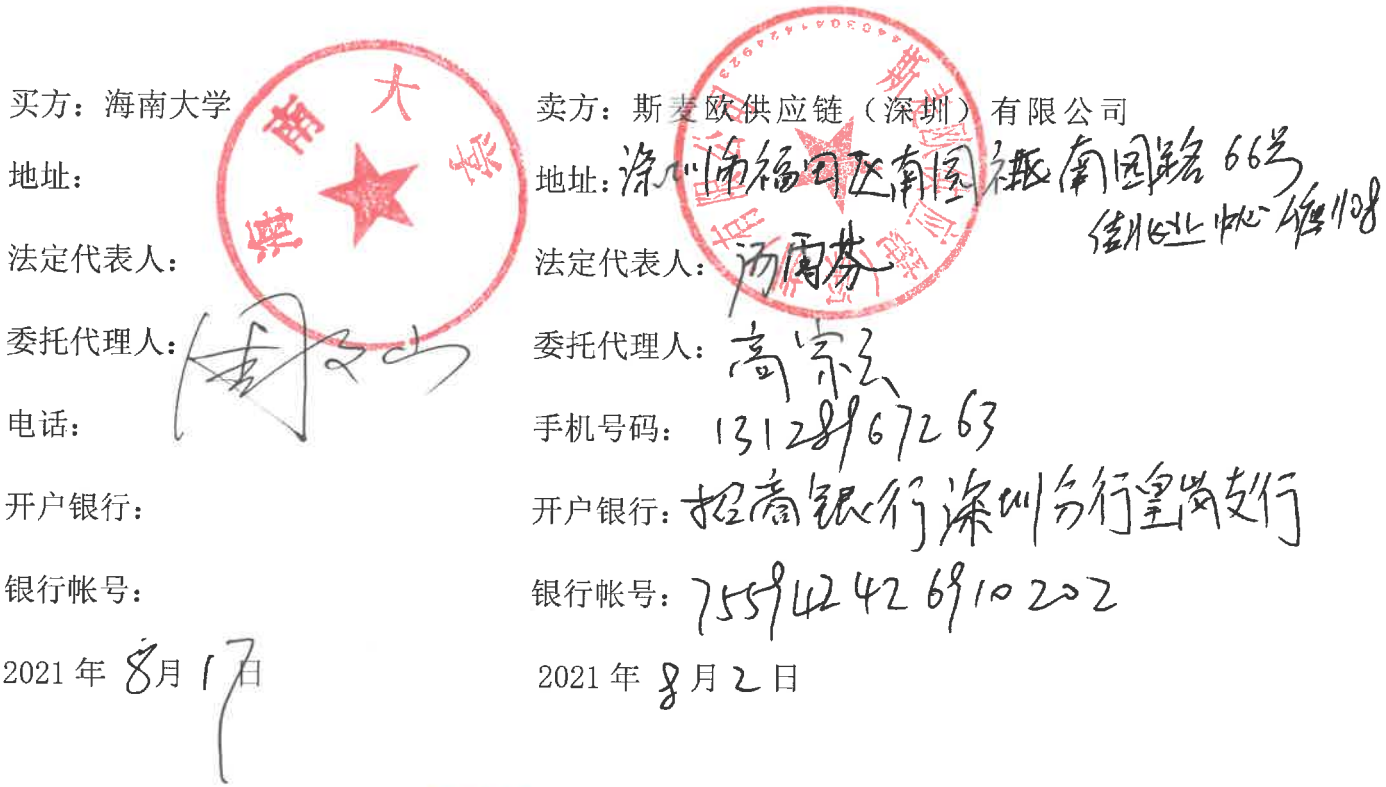 买方：海南大学
地址：
法定代表人：
委托代理人：周文山
电话：
开户银行：
银行帐号：
2021 年 8月 17日
海南大学
卖方：斯麦欧供应链（深圳）有限公司
地址：深圳市福田区南园街道南园路 66号
佳兆业中心 1108
法定代表人：雪芬
委托代理人：高宗云
手机号码：13128967263
开户银行：招商银行深圳分行皇岗支行
银行帐号：755942426910202
2021 年 8 月 2 日
斯麦欧供应链（深圳）有限公司